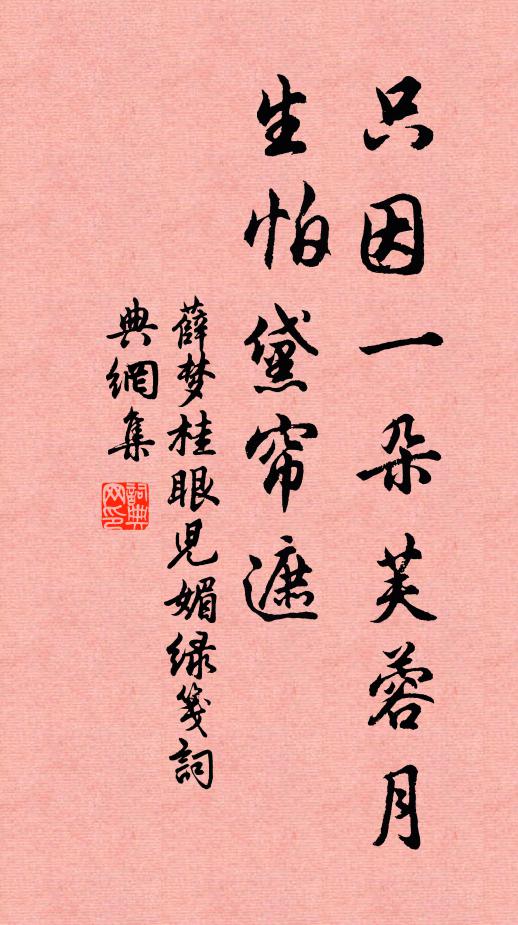 只因一朵芙蓉月
生怕黛帘遮
薛梦桂眼儿媚绿笺詞
典網集
詞典
网印